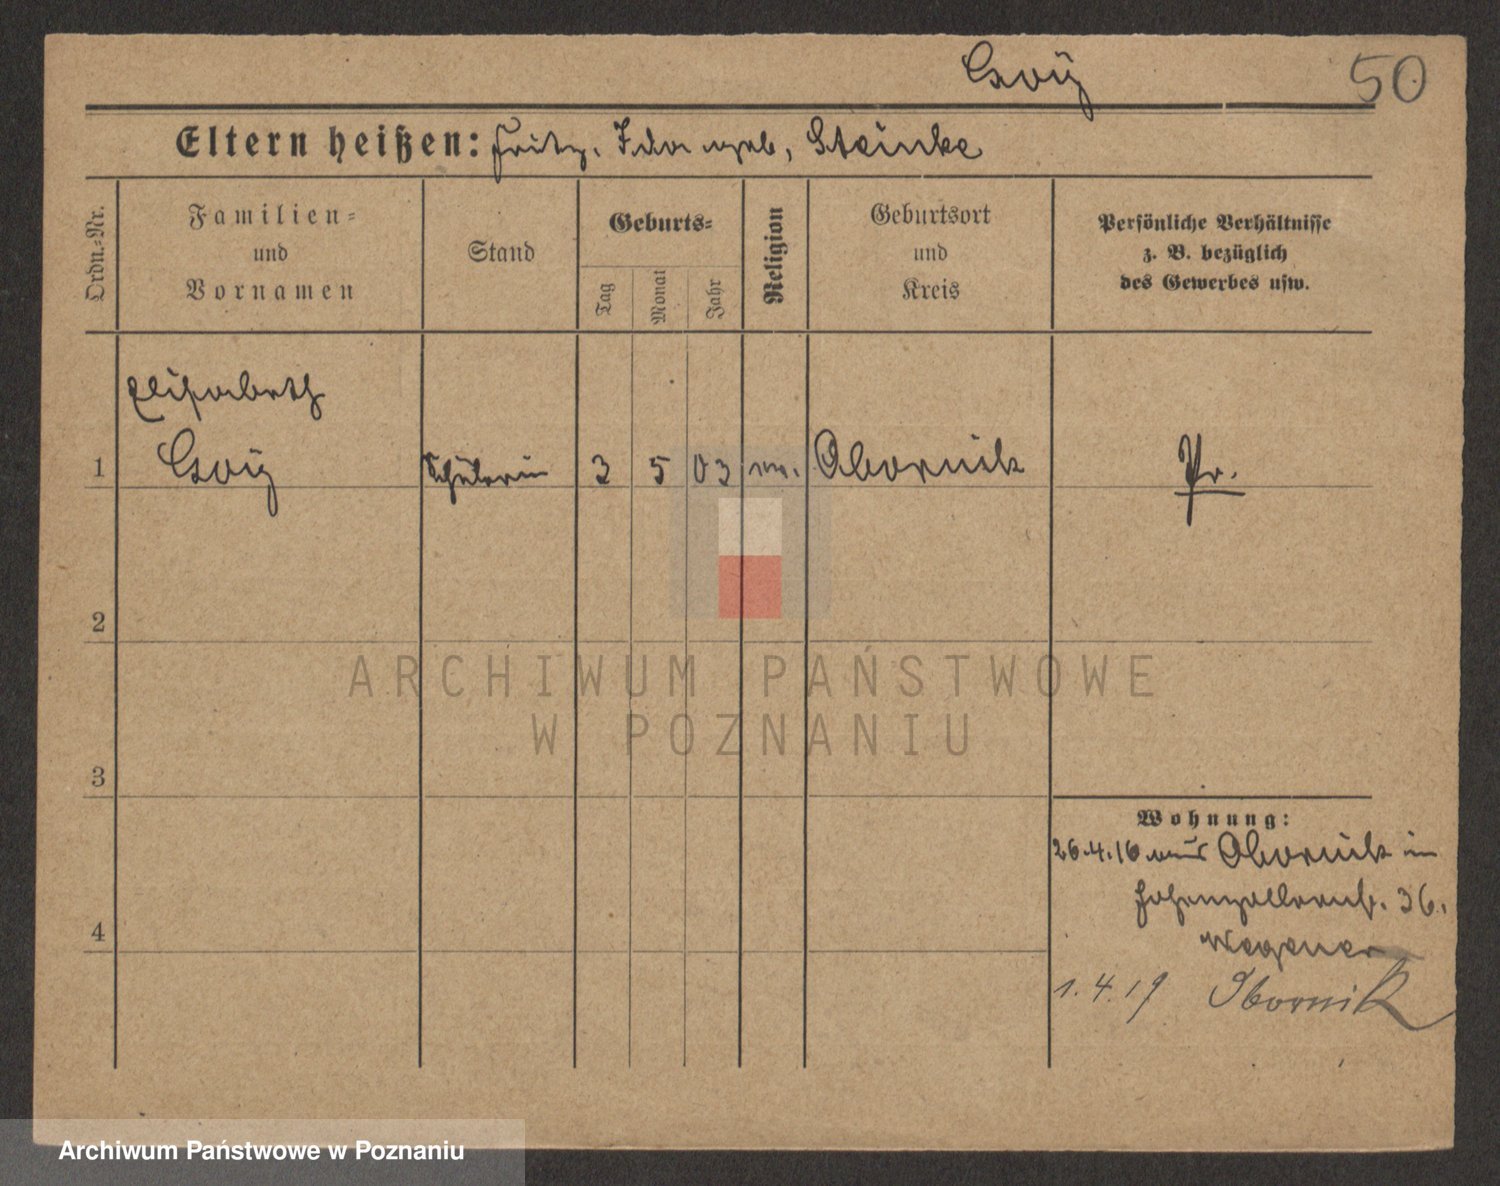 Goÿ 50
Eltern heißen: Fritz, Ida geb. Steinke
Ordn.=Nr.
Familien=
und
Vornamen
Stand
Geburts=
Tag
Monat
Jahr
Religion
Geburtsort
und
Kreis
Persönliche Verhältnisse
z. B. bezüglich
des Gewerbes usw.
Elisabeth
1 Goÿ Schülerin 3 5 03 ev. Obornik Pr.
2
ARCHIWUM PAŃSTWOWE
W POZNANIU
3
Wohnung:
26.4.16 aus Obornik in
Hohenzollernst. 36.
4
Wegener
1.4.19 Obornik
Archiwum Państwowe w Poznaniu